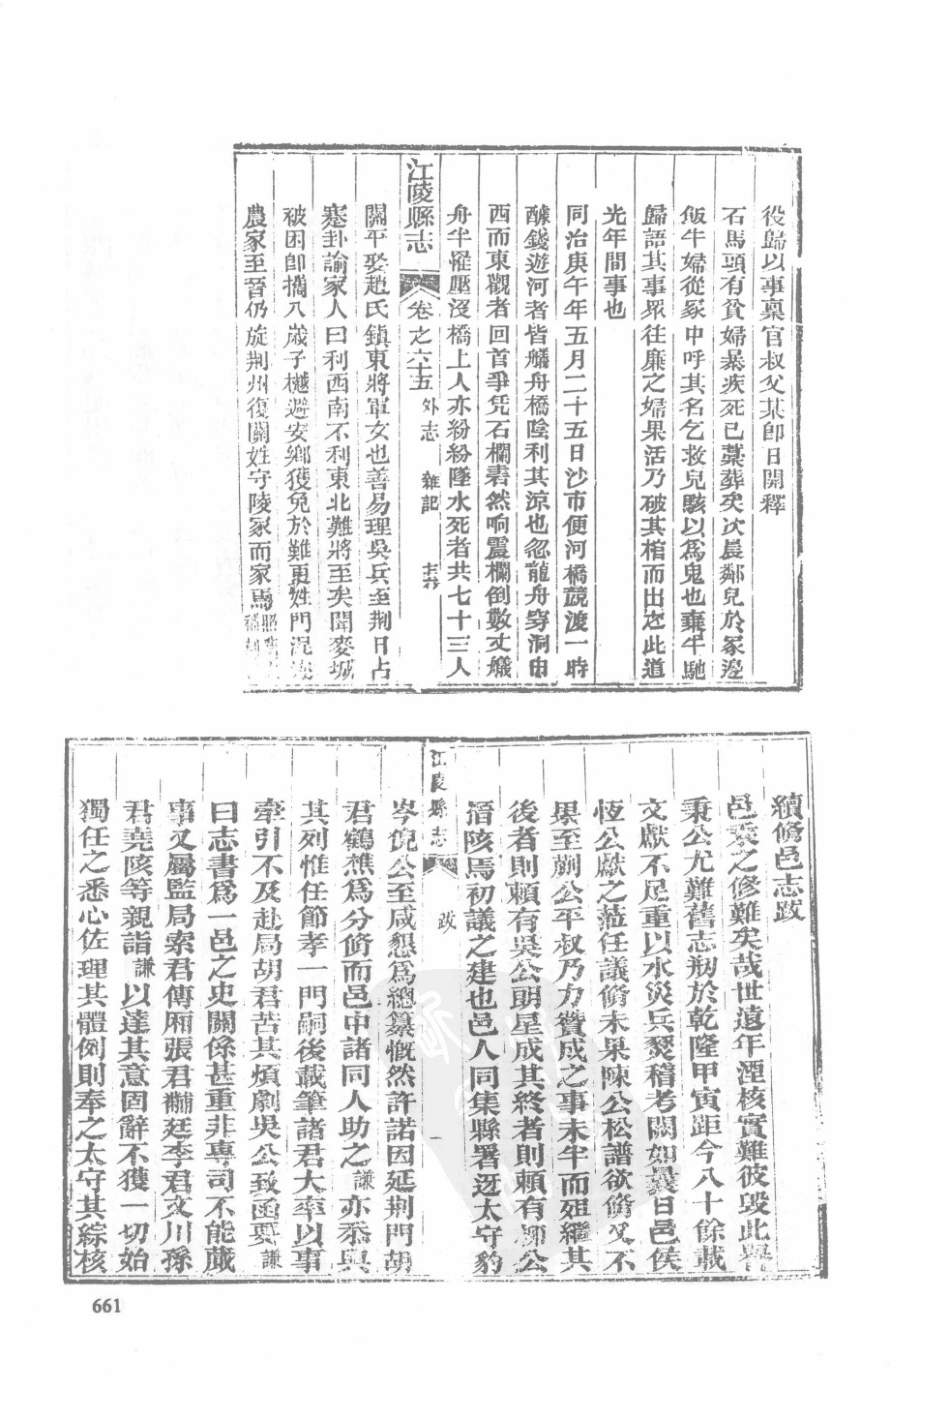 役歸以事稟官叔父某卽日開釋
石馬頭有貧婦暴疾死已藁葬矣次晨鄰兒於冢邊
飯牛婦從冢中呼其名乞救兒駭以爲鬼也棄牛馳
歸語其事眾往廉之婦果活乃破其棺而出之此道
光年間事也
同治庚午年五月二十五日沙市便河橋競渡一時
醵錢遊河者皆艤舟橋陰利其涼也忽龍舟穿洞由
西而東觀者回首爭凭石欄砉然响震欄倒數丈艤
舟半罹壓沒橋上人亦紛紛墜水死者共七十三人
江陵縣志 卷之六十五 外志 雜記
關平娶趙氏鎮東將軍女也善易理吳兵至荆日占
蹇卦諭家人曰利西南不利東北難將至矣聞麥城
被困卽攜八歲子樾避安鄉獲免於難更姓門混
農家至晉仍旋荆州復關姓守陵冢而家焉
續修邑志跋
邑乘之修難矣哉世遠年湮核實難彼毀此譽
秉公尤難舊志刱於乾隆甲寅距今八十餘載
文獻不足重以水災兵燹稽考闕如曩日邑侯
恆公獻之蒞任議修未果陳公松譜欲修又不
果至蒯公平叔乃力贊成之事未半而殂繼其
後者則賴有吳公朗星成其終者則賴有柳公
湣陔焉初議之建也邑人同集縣署迓太守豹
江陵縣志 跋 一
岑倪公至咸懇爲總纂慨然許諾因延荆門胡
君鶴樵爲分修而邑中諸同人助之謙亦忝與
其列惟任節孝一門嗣後載筆諸君大率以事
牽引不及赴局胡君苦其煩劇吳公致函要謙
曰志書爲一邑之史關係甚重非專司不能蕆
事又屬監局索君傳厢張君黼廷李君文川孫
君堯陔等親詣謙以達其意固辭不獲一切始
獨任之悉心佐理其體例則奉之太守其綜核
661